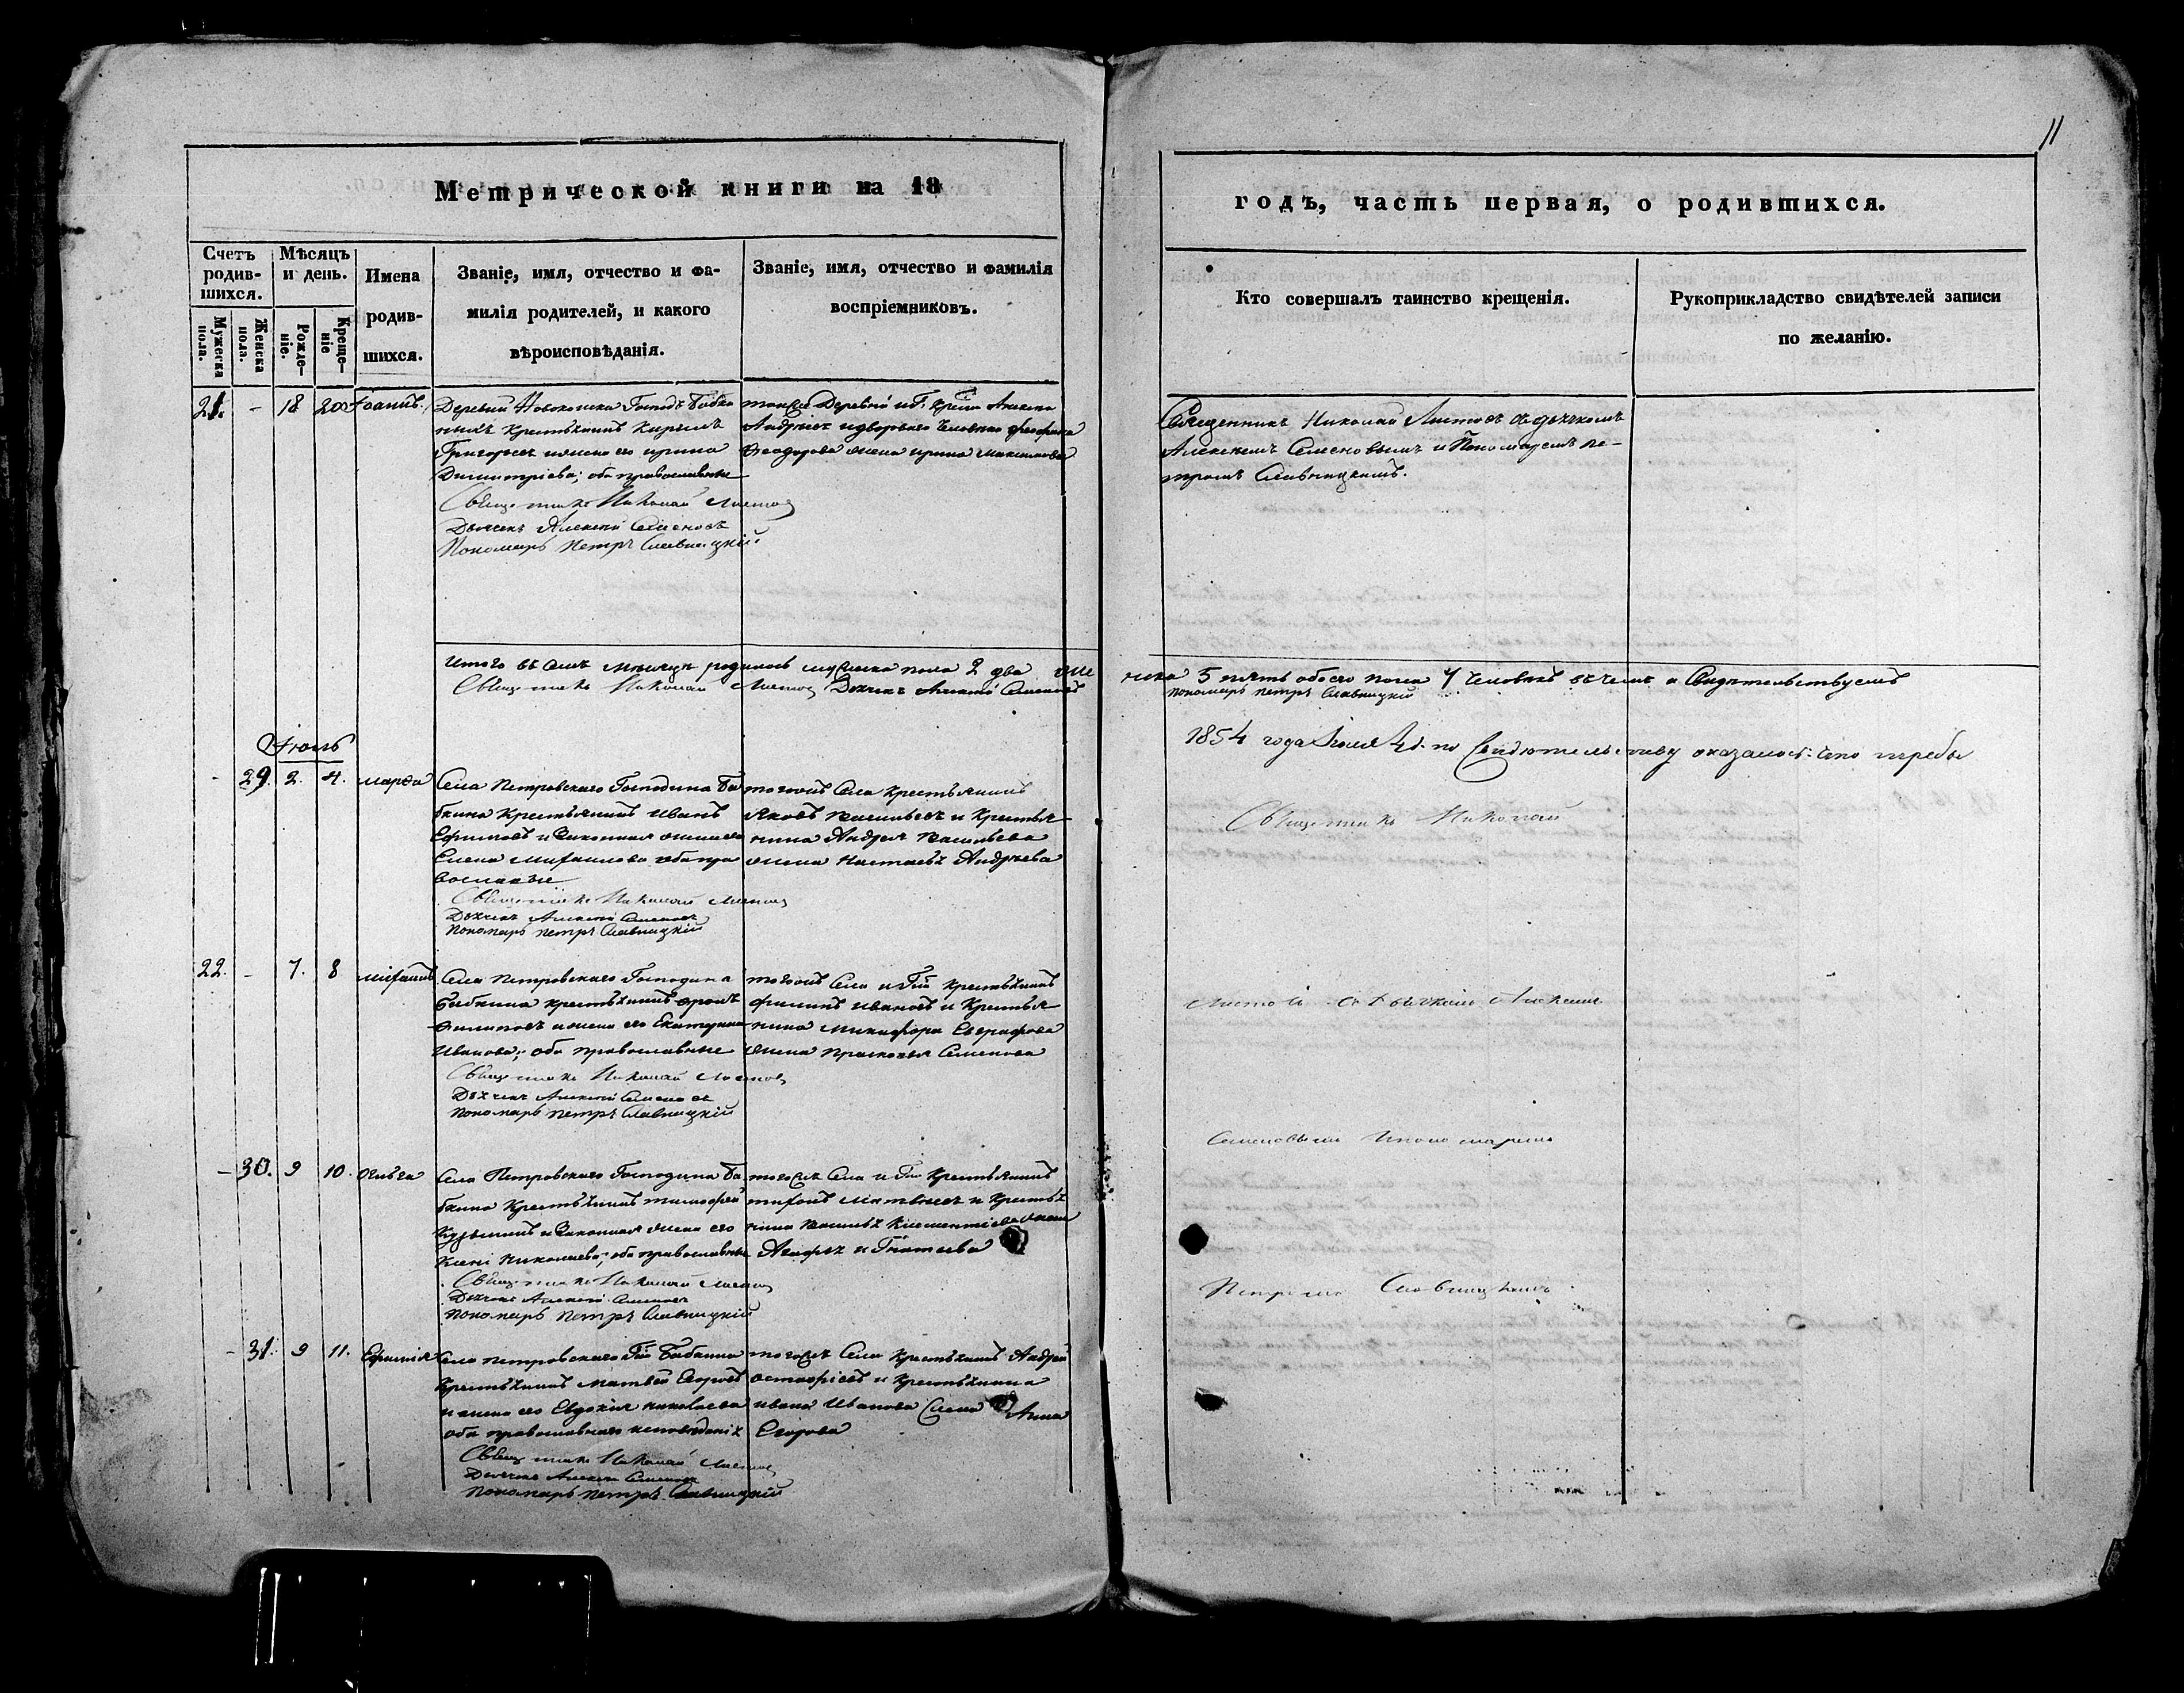 11
Метрической книги на 18
годъ, часть первая, о родившихся.
Счетъ родившихся.
Мужеска пола.
Женска пола.
Мѣсяцъ и день.
Рожденіе.
Крещеніе
Имена родившихся.
Званіе, имя, отчество и фамилія родителей, и какого вѣроисповѣданія.
Званіе, имя, отчество и фамилія воспріемниковъ.
Кто совершалъ таинство крещенія.
Рукоприкладство свидѣтелей записи по желанію.
21. - 18 20 Іоаннъ.
Деревни Господ. Бабкиныхъ крестьянинъ Кирилъ
Григорьевъ и жена его Ирина
Димитріева; оба православные
Священникъ Николай Листов
Дьячекъ Алексей Семеновъ
Пономарь Петръ Славницкій
тоя же Деревни
Андреевъ и двороваго человека
Феодорова жена Ирина Максимова
Священникъ Николай Листовъ съ дьячкомъ
Алексеемъ Семеновымъ и Пономаремъ Пе-
тромъ Славницкимъ.
Итого въ семъ месяце родилось мужеска пола 2 два же
нска 5 пять обоего пола 7 человекъ въ чемъ и Свидетельствуемъ
Священникъ Николай Листов Дьячекъ Алексей Семеновъ
пономарь Петръ Славницкій
1854 года Іюля 4 д. по Свидетельству оказалось что
Іюнь
- 29. 2. 4. Марфа
Села Петровскаго Господина Ба
бкина Крестьянинъ Иванъ
Ефимовъ и Законная жена его
Елена Михаилова оба пра
вославные
Священникъ Николай Листов
Дьячекъ Алексей Семеновъ
Пономарь Петръ Славницкій
тогожъ Села Крестьянинъ
Яковъ Васильевъ и Крестья
нина Андрея Васильева
жена Настасья Андреева
Священникъ Николай
22. - 7. 8 Михаилъ
Села Петровскаго Господина
Бабкина крестьянинъ Фролъ
Филиповъ и жена его Екатерина
Иванова; оба православные
Священникъ Николай Листов
Дьячекъ Алексей Семеновъ
Пономарь Петръ Славницкій
тогожъ Села и Гна крестьянинъ
Филипъ Ивановъ и Крестья
нина Никифора Евграфова
жена Прасковья Семенова
Листов съ Дьячкомъ Алексеемъ
- 30. 9 10. Ольга
Села Петровскаго Господина Ба
бкина Крестьянинъ Тимофей
Кузьминъ и Законная жена его
Николаева; оба православные
Священникъ Николай Листов
Дьячекъ Алексей Семеновъ
Пономарь Петръ Славницкій
тогоже Села и Гна Крестьянинъ
Тихонъ Матвеевъ и Крестья
нина Василья Климентіева жена
Агафья Игнатьева
Семеновымъ и пономаремъ
Петромъ Славницкимъ
- 31. 9 11. Ефимія
Села Петровскаго Гна Бабкина
Крестьянинъ Матвей Егоровъ
и жена его Евдокия Николаева
оба православнаго исповеданія
Священникъ Николай Листов
Дьячекъ Алексей Семеновъ
Пономарь Петръ Славницкій
тогоже Села крестьянинъ Андрей
Остафіевъ и Крестьянина
Ивана Иванова жена Анна
Егорова